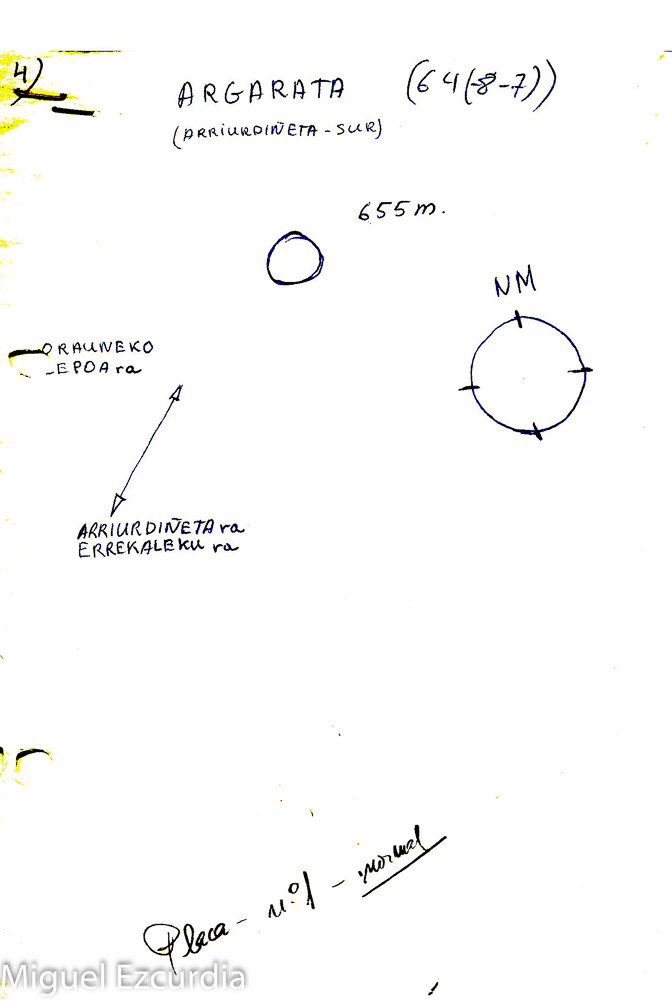 4)
ARGARATA (64(8-7))
(ARRIURDIÑETA-SUR)
655m.
NM
ORAUNEKO
LEPOA ra
ARRIURDIÑETA ra
ERREKALEKU ra
Placa - nº1 - normal
Miguel Ezcurdia